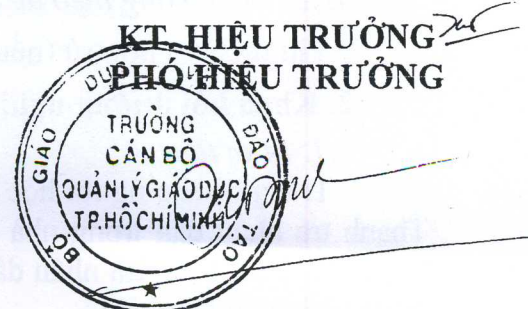 KT. HIỆU TRƯỞNG
PHÓ HIỆU TRƯỞNG
BỘ GIÁO DỤC VÀ ĐÀO TẠO
TRƯỜNG
CÁN BỘ
QUẢN LÝ GIÁO DỤC
TP.HỒ CHÍ MINH